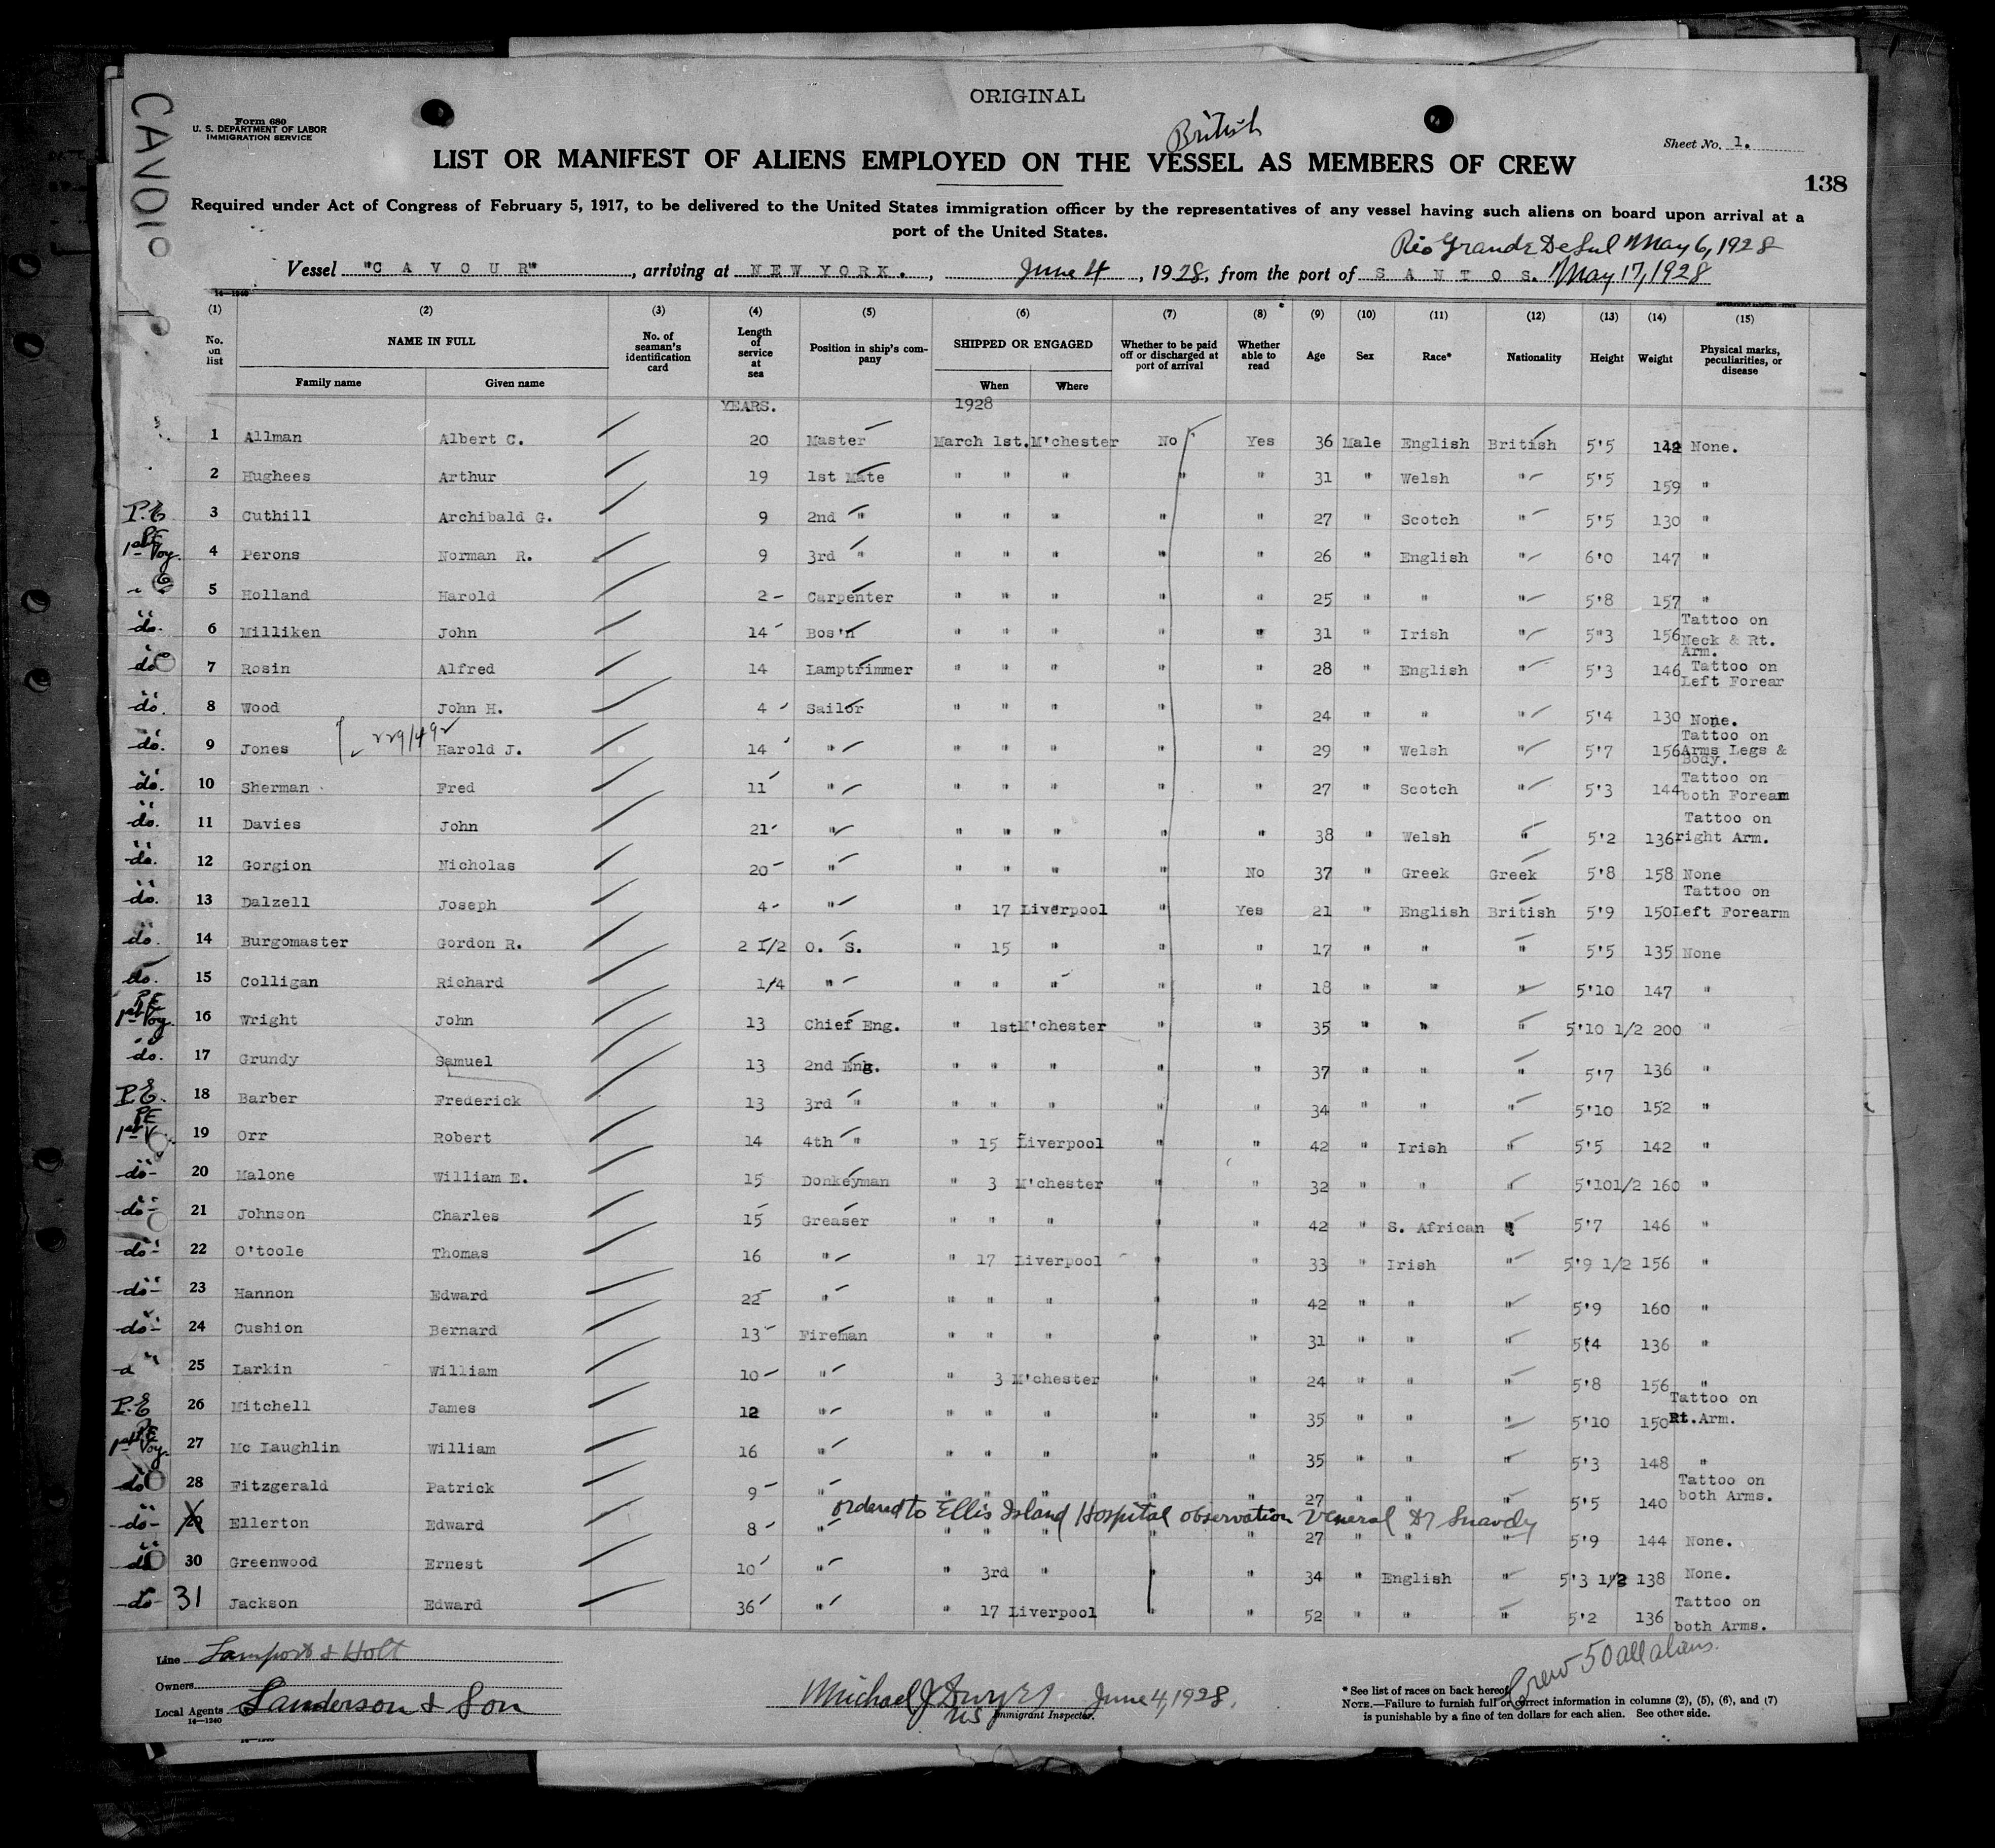 ORIGINAL
CAVOUR
Form 680
U. S. DEPARTMENT OF LABOR
IMMIGRATION SERVICE
British
Sheet No. 1.
LIST OR MANIFEST OF ALIENS EMPLOYED ON THE VESSEL AS MEMBERS OF CREW
138
Required under Act of Congress of February 5, 1917, to be delivered to the United States immigration officer by the representatives of any vessel having such aliens on board upon arrival at a
port of the United States.
Rio Grande De Sul May 6, 1928
Vessel "CAVOUR", arriving at NEW YORK., June 4, 1928, from the port of SANTOS. May 17, 1928
14—1240
(1) (2) (3) (4) (5) (6) (7) (8) (9) (10) (11) (12) (13) (14) (15)
No. on list NAME IN FULL Family name Given name No. of seaman's identification card Length of service at sea Position in ship's company SHIPPED OR ENGAGED When Where Whether to be paid off or discharged at port of arrival Whether able to read Age Sex Race* Nationality Height Weight Physical marks, peculiarities, or disease
YEARS. 1928
1 Allman Albert C. 20 Master March 1st. M'chester No Yes 36 Male English British 5'5 142 None.
2 Hughees Arthur 19 1st Mate " " " " " 31 " Welsh " 5'5 159 "
P.E. 3 Cuthill Archibald G. 9 2nd " " " " " " 27 " Scotch " 5'5 130 "
P.E. 1st Voy. 4 Perons Norman R. 9 3rd " " " " " " 26 " English " 6'0 147 "
5 Holland Harold 2 Carpenter " " " " " 25 " " " 5'8 157 "
do. 6 Milliken John 14 Bos'n " " " " " 31 " Irish " 5"3 156 Tattoo on Neck & Rt. Arm.
do 7 Rosin Alfred 14 Lamptrimmer " " " " " 28 " English " 5'3 146 Tattoo on Left Forear
do. 8 Wood John H. 4 Sailor " " " " " 24 " " " 5'4 130 None.
do. 9 Jones 229/492 Harold J. 14 " " " " " " 29 " Welsh " 5'7 156 Tattoo on Arms Legs & Body.
do. 10 Sherman Fred 11 " " " " " " 27 " Scotch " 5'3 144 Tattoo on both Foream
do. 11 Davies John 21 " " " " " " 38 " Welsh " 5'2 136 Tattoo on right Arm.
do. 12 Gorgion Nicholas 20 " " " " " No 37 " Greek Greek 5'8 158 None
do. 13 Dalzell Joseph 4 " " 17 Liverpool " Yes 21 " English British 5'9 150 Tattoo on Left Forearm
do. 14 Burgomaster Gordon R. 2 1/2 O. S. " 15 " " " 17 " " " 5'5 135 None
do. 15 Colligan Richard 1/4 " " " " " " 18 " " " 5'10 147 "
P.E. 1st Voy. 16 Wright John 13 Chief Eng. " 1st M'chester " " 35 " " " 5'10 1/2 200 "
do. 17 Grundy Samuel 13 2nd Eng. " " " " " 37 " " " 5'7 136 "
P.E. 18 Barber Frederick 13 3rd " " " " " " 34 " " " 5'10 152 "
P.E. 1st V. 19 Orr Robert 14 4th " " 15 Liverpool " " 42 " Irish " 5'5 142 "
do 20 Malone William E. 15 Donkeyman " 3 M'chester " " 32 " " " 5'10 1/2 160 "
do 21 Johnson Charles 15 Greaser " " " " " 42 " S. African " 5'7 146 "
do 22 O'toole Thomas 16 " " 17 Liverpool " " 33 " Irish " 5'9 1/2 156 "
do 23 Hannon Edward 22 " " " " " " 42 " " " 5'9 160 "
do 24 Cushion Bernard 13 Fireman " " " " " 31 " " " 5'4 136 "
25 Larkin William 10 " " 3 M'chester " " 24 " " " 5'8 156 "
P.E 26 Mitchell James 12 " " " " " " 35 " " " 5'10 150 Tattoo on Rt. Arm.
P.E 1st Voy. 27 Mc Laughlin William 16 " " " " " " 35 " " " 5'3 148 "
do 28 Fitzgerald Patrick 9 " " " " " " 27 " " " 5'5 140 Tattoo on both Arms.
ordered to Ellis Island Hospital observation Veneral Dr
do 29 Ellerton Edward 8 " " " " " " 27 " " " 5'9 144 None.
do 30 Greenwood Ernest 10 " " 3rd " " " 34 " English " 5'3 1/2 138 None.
do 31 Jackson Edward 36 " " 17 Liverpool " " 52 " " " 5'2 136 Tattoo on both Arms.
Line Lamport & Holt
Crew 50 all aliens.
Owners
Local Agents Sanderson & Son
14—1240
Michael J Dwyer June 4, 1928.
Immigrant Inspector.
* See list of races on back hereof.
NOTE.—Failure to furnish full or correct information in columns (2), (5), (6), and (7)
is punishable by a fine of ten dollars for each alien. See other side.